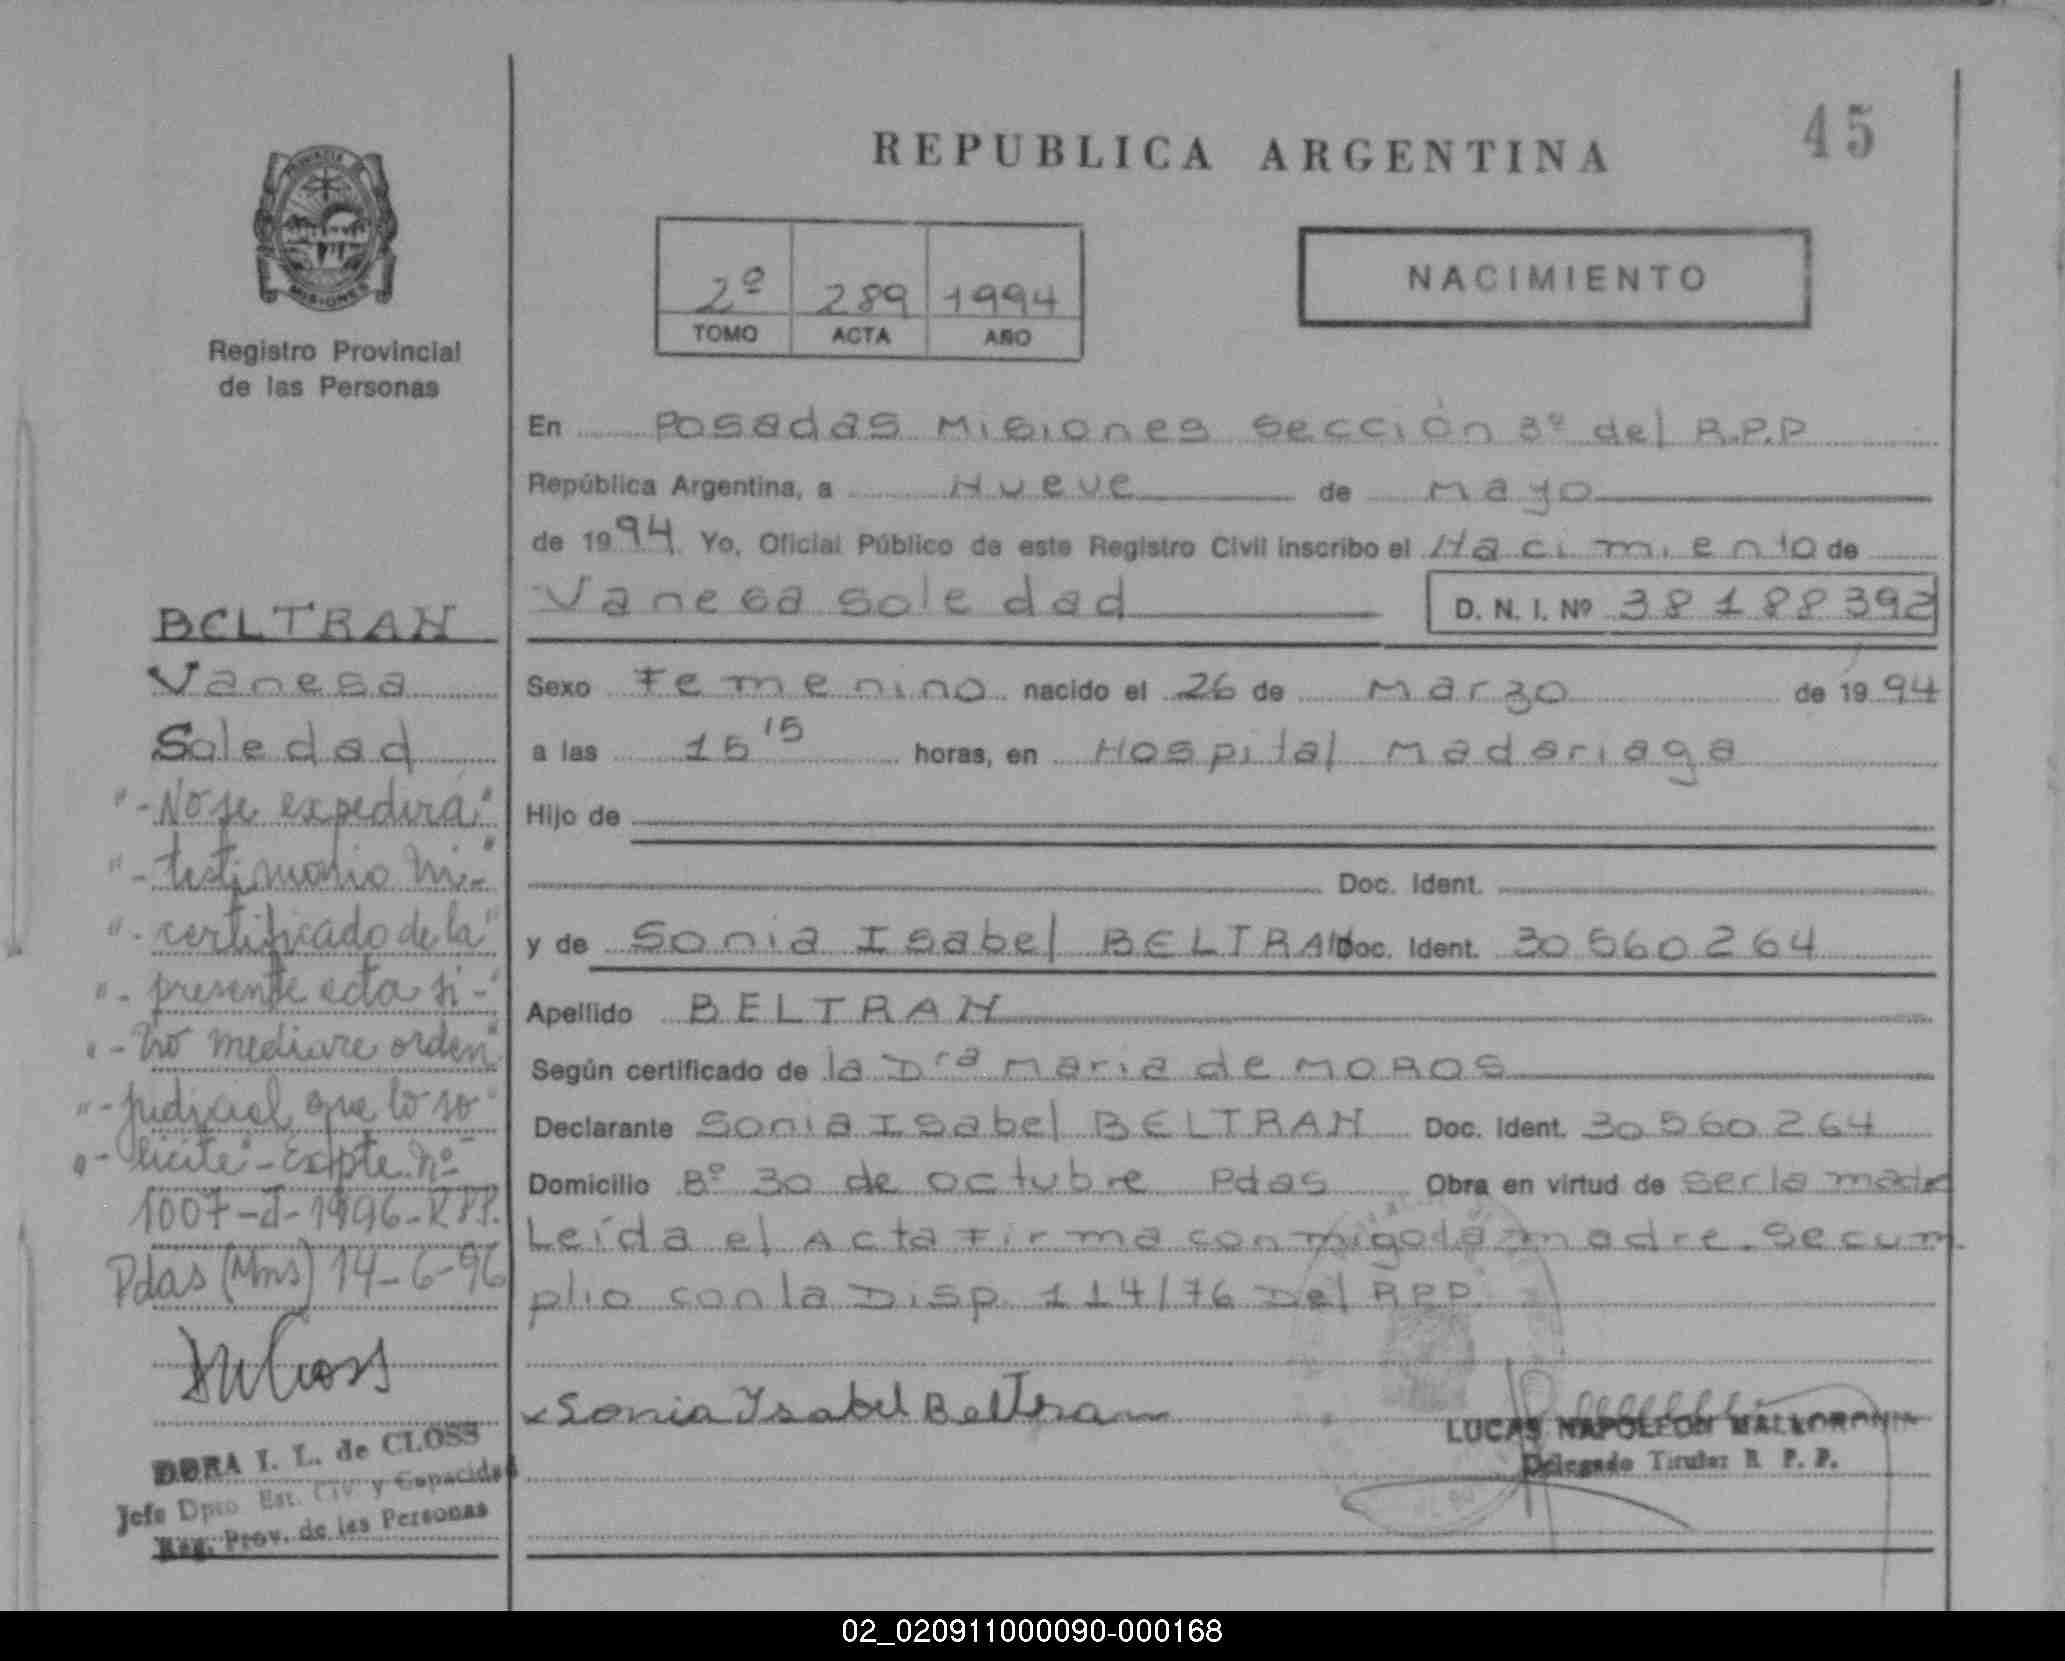 REPUBLICA ARGENTINA
45
MISIONES
Registro Provincial
de las Personas
2º 289 1994
TOMO ACTA AÑO
NACIMIENTO
En Posadas Misiones Sección 3º del R.P.P
República Argentina, a Nueve de Mayo
de 1994 Yo, Oficial Público de este Registro Civil inscribo el Nacimiento de
Vanesa Soledad D. N. I. Nº 38188392
Sexo Femenino nacido el 26 de Marzo de 1994
a las 15 15 horas, en Hospital Madariaga
Hijo de
Doc. Ident.
y de Sonia Isabel BELTRAN Doc. Ident. 30560264
Apellido BELTRAN
Según certificado de la Dra Maria de MOROS
Declarante Sonia Isabel BELTRAN Doc. Ident. 30560264
Domicilio Bº 30 de octubre Pdas Obra en virtud de ser la madre
Leída el Acta Firma conmigo la madre. Se cum
plio con la Disp. 114/76 Del R.P.P.
Sonia Isabel Beltran
LUCAS NAPOLEON
Delegado Titular R. P. P.
BELTRAN
Vanesa
Soledad
"- No se expedirá"
"- testimonio ni-"
"- certificado de la"
"- presente acta si-"
"- no mediare orden"
"- judicial que lo so"
"- licite"- Expte. nº
1007-J-1996-R.P.P.
Pdas (Mns) 14-6-96
DORA I. L. de CLOSS
Jefe Dpto Est. Civ y Capacidad
Reg. Prov. de las Personas
02_020911000090-000168